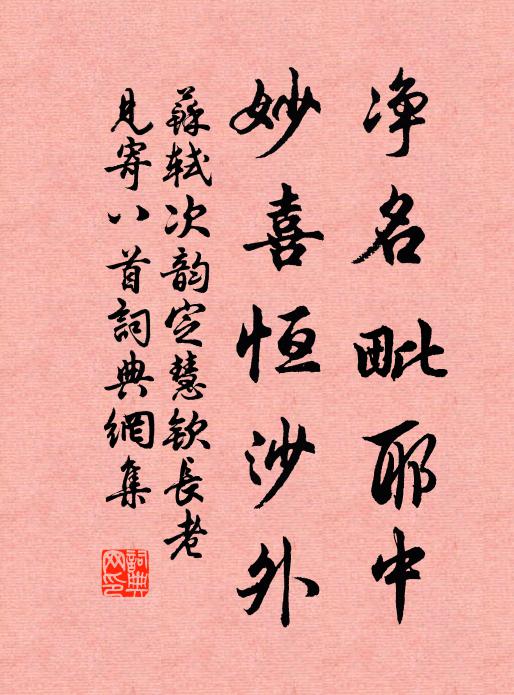 净名毗耶中
妙喜恒沙外
蘇轼次韵定慧欽長老
見寄八首詞典網集
詞典
网印